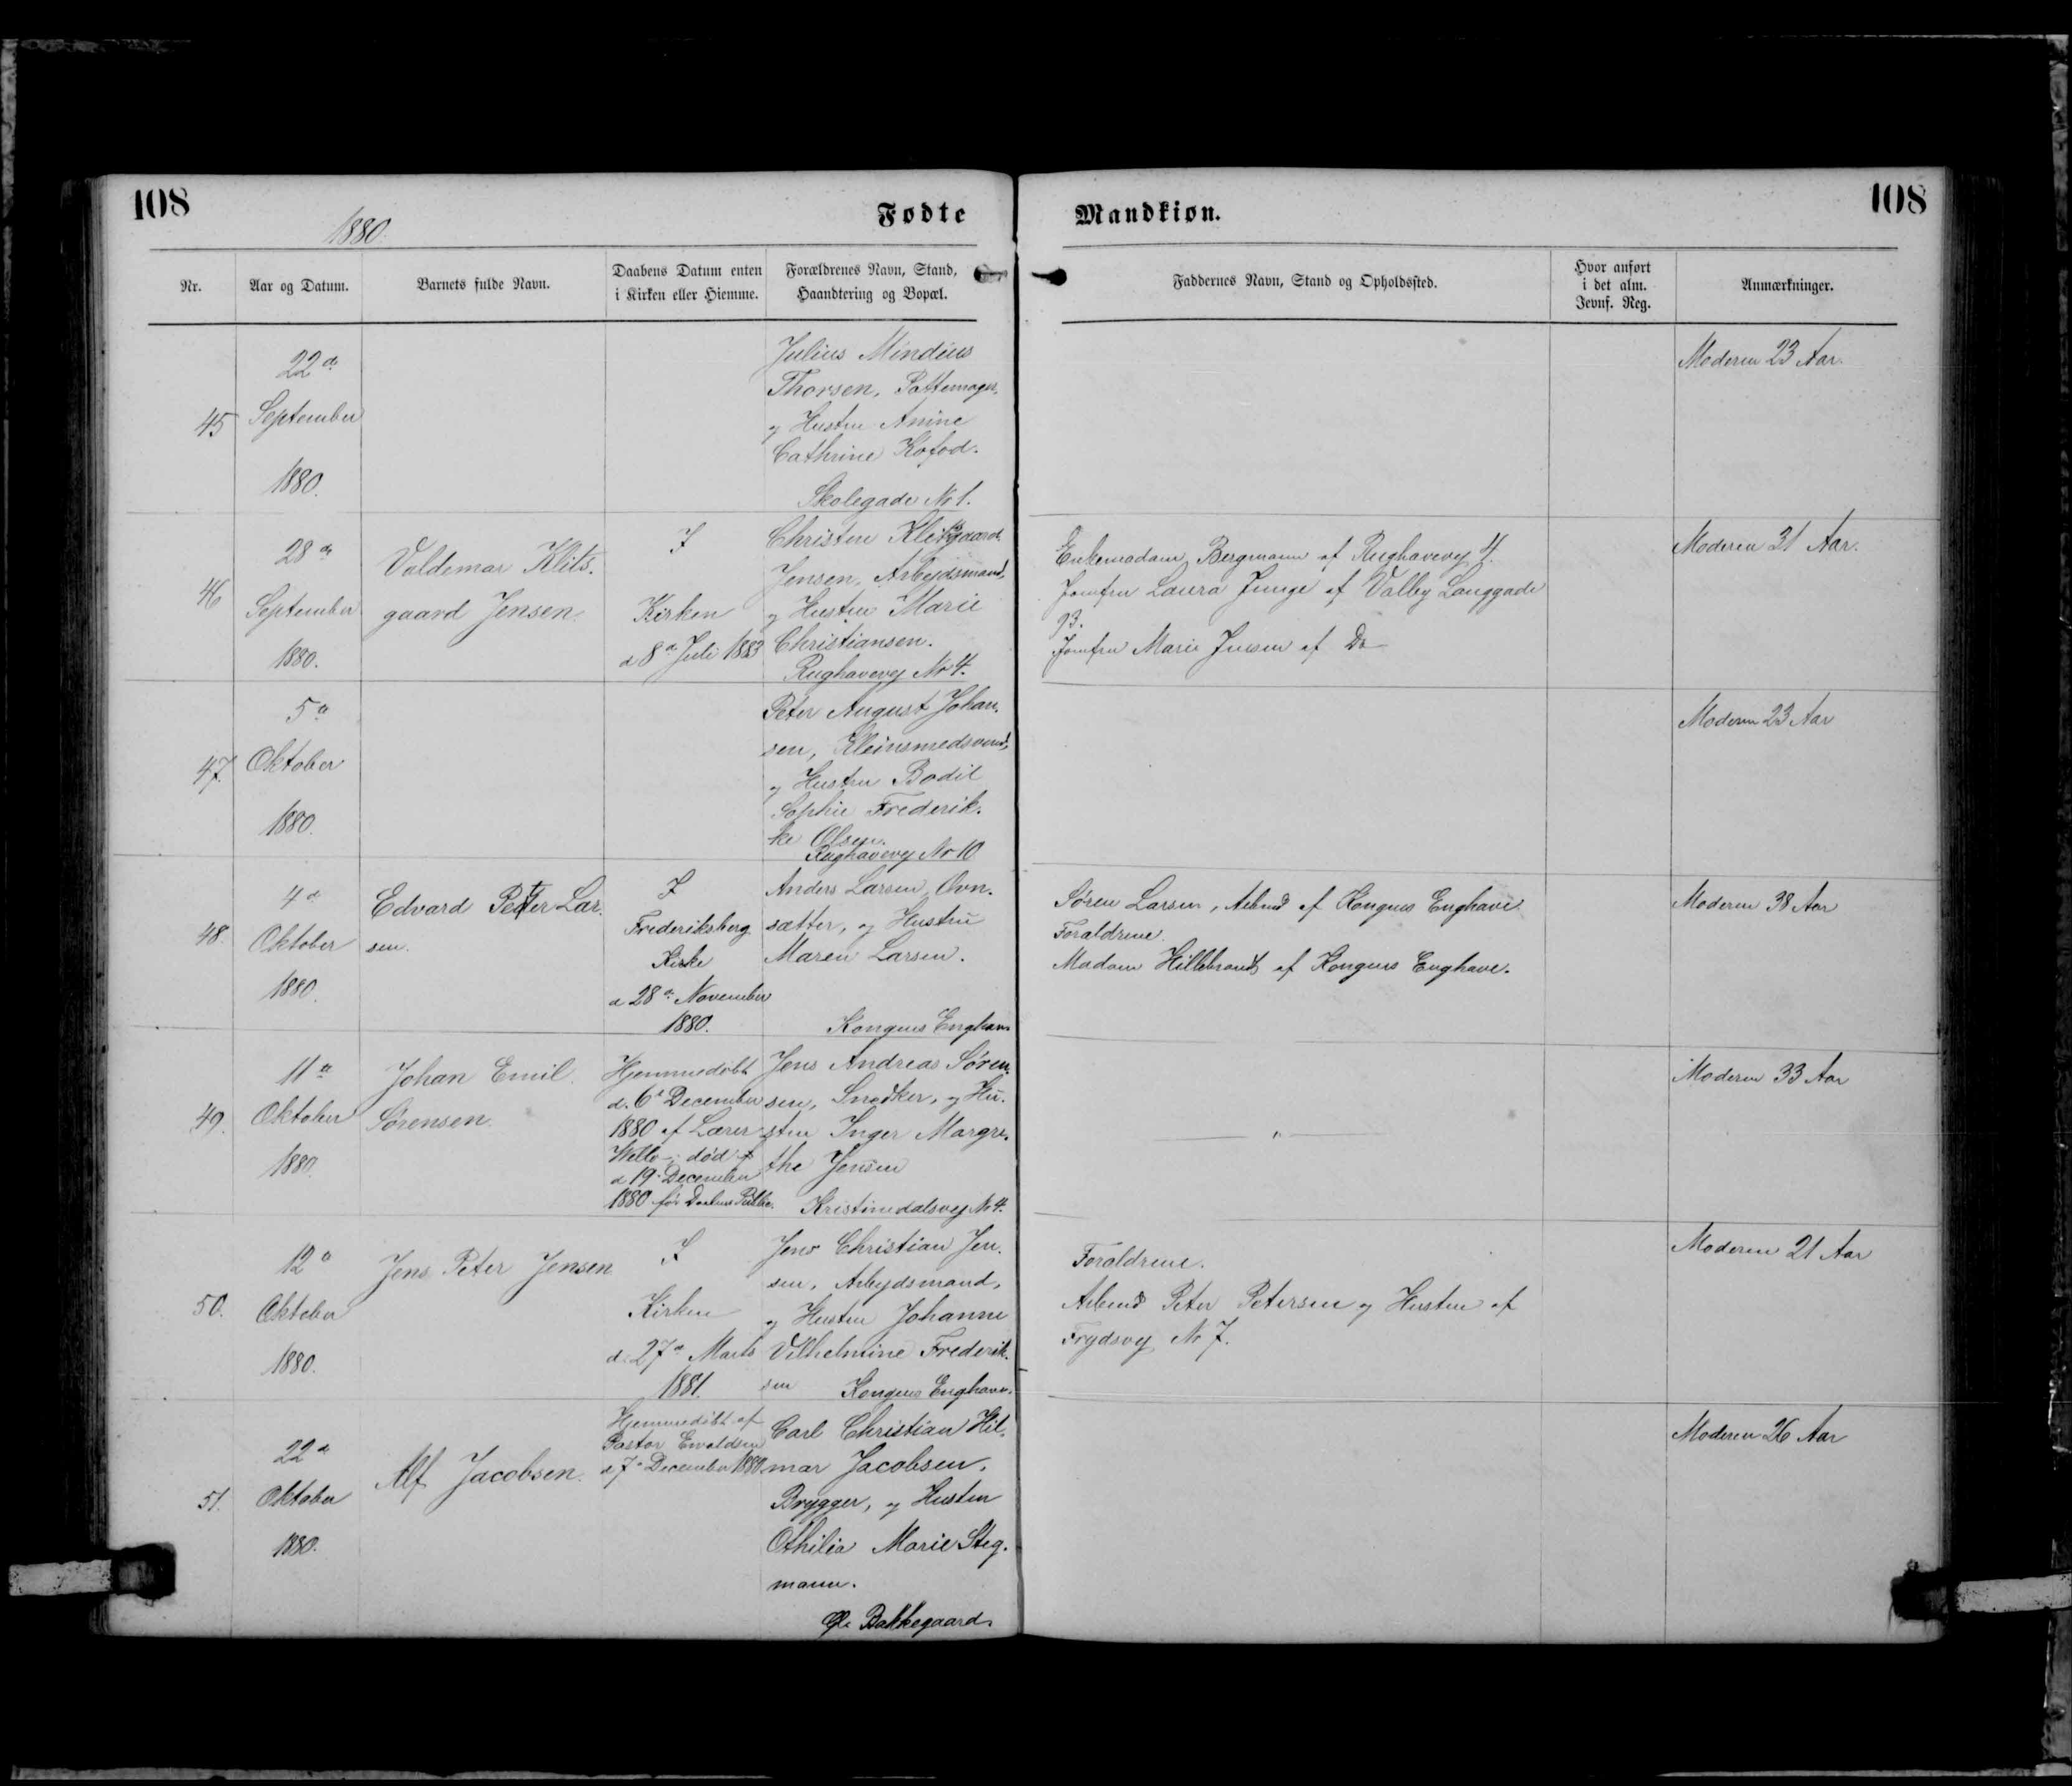 108
1880.
Fødte
Mandkiøn.
108
Nr.
Aar og Datum.
Barnets fulde Navn.
Daabens Datum enten
i Kirken eller Hiemme.
Forældrenes Navn, Stand,
Haandtering og Bopæl.
Faddernes Navn, Stand og Opholdssted.
Hvor anført
i det alm.
Jevnf. Reg.
Anmærkninger.
45
22de
September
1880.
Julius Mindius
Thorsen, Pottemager,
og Hustru Anine
Cathrine Kofod.
Skolegade Nr 1.
Moderen 23 Aar.
46
28de
September
1880.
Valdemar Klits-
gaard Jensen.
I
Kirken
d 8de Juli 1883
Christen Klitsgaard
Jensen, Arbejdsmand,
og Hustru Marie
Christiansen.
Rughavevej Nr 4.
Enkemadam Bergmann af Rughavevej 4.
Jomfru Laura Junge af Valby Langgade
93.
Jomfru Marie Jensen af Do
Moderen 31 Aar.
47.
5te
Oktober
1880.
Peter August Johan-
sen, Kleinsmedsvend,
og Hustru Bodil
Sophie Frederik-
ke Olsen.
Rughavevej Nr 10
Moderen 23 Aar
48.
4de
Oktober
1880.
Edvard Petter Lar-
sen.
I
Frederiksberg
Kirke
d 28de November
1880.
Anders Larsen, Ovn-
sætter, og Hustru
Maren Larsen.
Kongens Enghave
Søren Larsen, Arbmd af Kongens Enghave
Forældrene.
Madam Hillebrandt af Kongens Enghave.
Moderen 38 Aar
49.
11te
Oktober
1880.
Johan Emil
Sørensen.
Hjemmedøbt
d. 6te December
1880 af Lærer
død
d 19de December
1880 før Daabens Public.
Jens Andreas Søren-
sen, Snedker, og Hu-
stru Inger Margre-
the Jensen
Kristinedalsvej Nr 4.
— " —
Moderen 33 Aar
50.
12te
Oktober
1880.
Jens Peter Jensen
I
Kirken
d. 27de Marts
1881.
Jens Christian Jen-
sen, Arbejdsmand,
og Hustru Johanne
Vilhelmine Frederik-
sen Kongens Enghave.
Forældrene.
Arbmd Peter Petersen og Hustru af
Frydsvej Nr 7.
Moderen 21 Aar
51.
22de
Oktober
1880.
Alf Jacobsen.
Hjemmedøbt af
Pastor Ewaldsen
d 7de December 1880
Carl Christian Hil-
mar Jacobsen,
Brygger, og Hustru
Othilia Marie Steg-
mann.
Gl. Bakkegaard.
Moderen 26 Aar